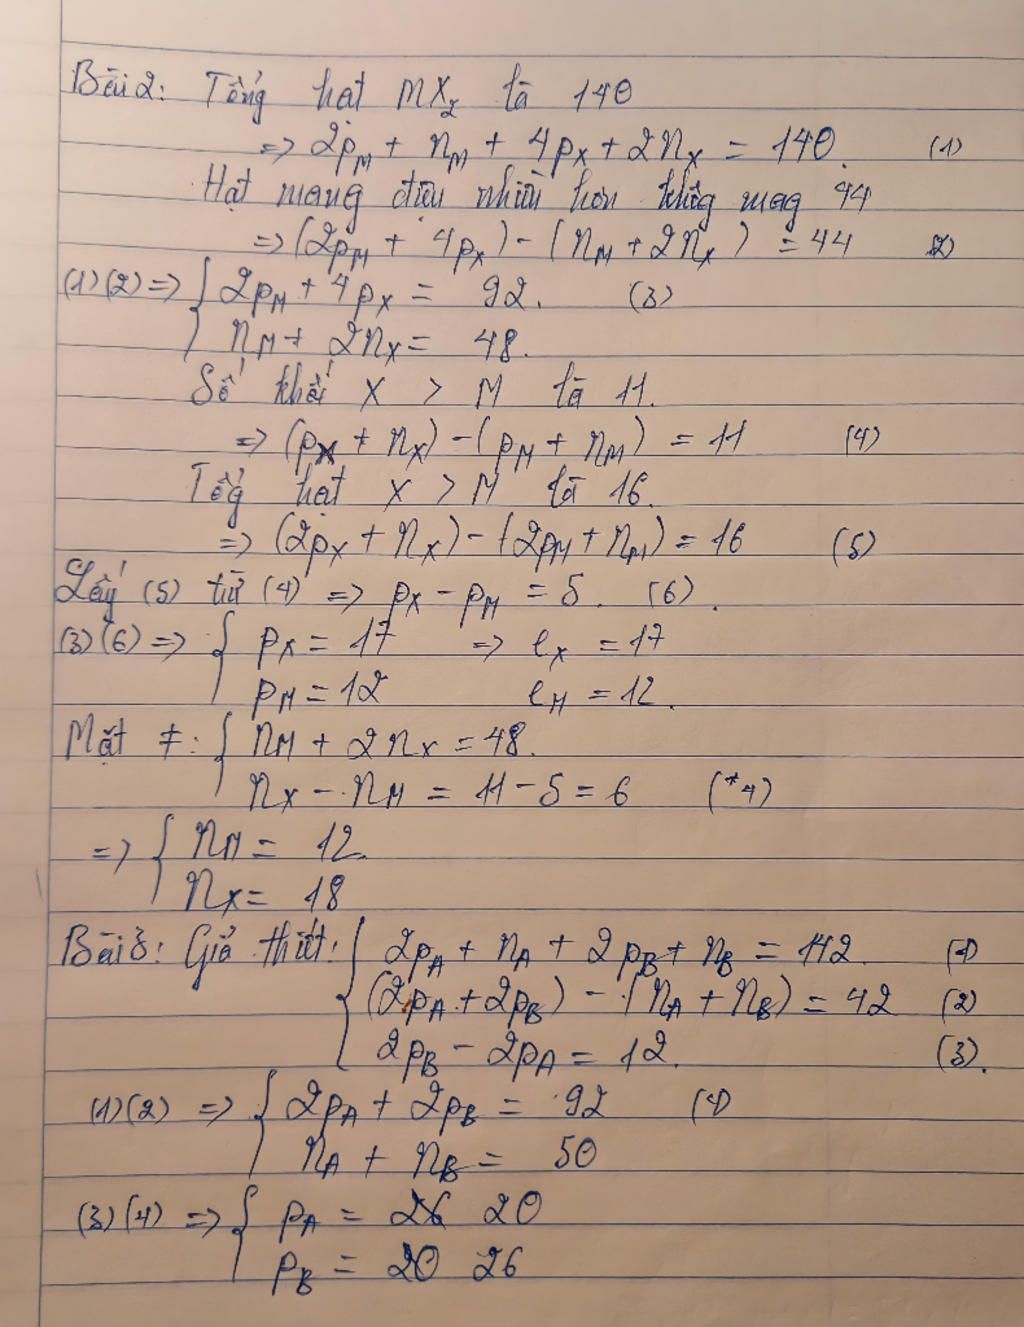 Bài 2: Tổng hạt MX₂ là 140
=> 2p_M + n_M + 4p_X + 2n_X = 140. (1)
Hạt mang điện nhiều hơn không mag 44
=> (2p_M + 4p_X) - (n_M + 2n_X) = 44 (2)
(1)(2) => { 2p_M + 4p_X = 92. (3)
n_M + 2n_X = 48.
Số khối X > M là 11.
=> (p_X + n_X) - (p_M + n_M) = 11 (4)
Tổng hạt X > M là 16.
=> (2p_X + n_X) - (2p_M + n_M) = 16 (5)
Lấy (5) từ (4) => p_X - p_M = 5. (6).
(3)(6) => { p_X = 17 => e_X = 17
p_M = 12 e_M = 12.
Mặt ≠: { n_M + 2n_X = 48.
n_X - n_M = 11 - 5 = 6 (*4)
=> { n_M = 12.
n_X = 18
Bài 3: Giả thiết: { 2p_A + n_A + 2p_B + n_B = 142 (1)
(2p_A + 2p_B) - (n_A + n_B) = 42 (2)
2p_B - 2p_A = 12. (3).
(1)(2) => { 2p_A + 2p_B = 92 (4)
n_A + n_B = 50
(3)(4) => { p_A = 26 20
p_B = 20 26